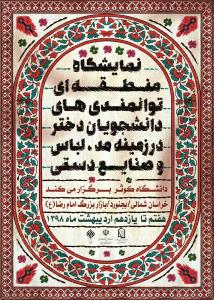 نمایشگاه
منطقه ای
توانمندی های
دانشجویان دختر
در زمینه مد، لباس
و صنایع دستی
دانشگاه کوثر برگزار می کند
خراسان شمالی/بجنورد/بازار بزرگ امام رضا (ع)
هفتم تا یازدهم اردیبهشت ماه ۱۳۹۸